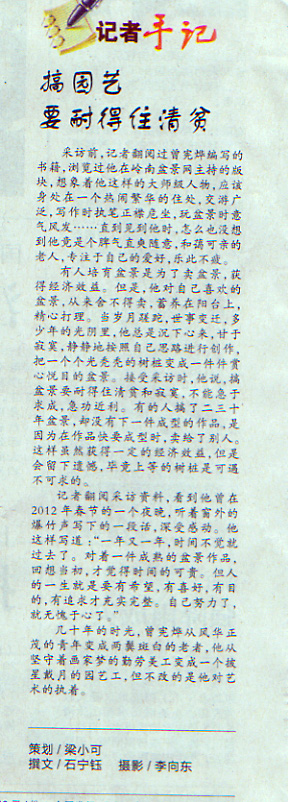 记者手记
搞园艺
要耐得住清贫
采访前,记者翻阅过曾宪烨编写的
书籍,浏览过他在岭南盆景网主持的版
块,想象着他这样的大师级人物,应该
身处在一个热闹繁华的住处,交游广
泛,写作时执笔正襟危坐,玩盆景时意
气风发……直到见到他时,怎么也没想
到他竟是个脾气直爽随意,和蔼可亲的
老人,专注于自己的爱好,乐此不疲。
有人培育盆景是为了卖盆景,获
得经济效益。但是,他对自己喜欢的
盆景,从来舍不得卖,蓄养在阳台上,
精心打理。当岁月蹉跎,世事变迁,多
少年的光阴里,他总是沉下心来,甘于
寂寞,静静地按照自己思路进行创作,
把一个个光秃秃的树桩变成一件件赏
心悦目的盆景。接受采访时,他说,搞
盆景要耐得住清贫和寂寞,不能急于
求成,急功近利。有的人搞了二三十
年盆景,却没有下一件成型的作品,是
因为在作品快要成型时,卖给了别人。
这样虽然获得一定的经济效益,但是
会留下遗憾,毕竟上等的树桩是可遇
不可求的。
记者翻阅采访资料,看到他曾在
2012年春节的一个夜晚,听着窗外的
爆竹声写下的一段话,深受感动。他
这样写道:“一年又一年,时间不觉就
过去了。对着一件成熟的盆景作品,
回想当初,才觉得时间的可贵。但人
的一生就是要有希望,有喜好,有目
的,有追求才充实完整。自己努力了,
就无愧于心了。”
几十年的时光,曾宪烨从风华正
茂的青年变成两鬓斑白的老者,他从
坚守着画家梦的勤劳美工变成一个披
星戴月的园艺工,但不改的是他对艺
术的执着。
策划/梁小可
撰文/石宁钰 摄影/李向东